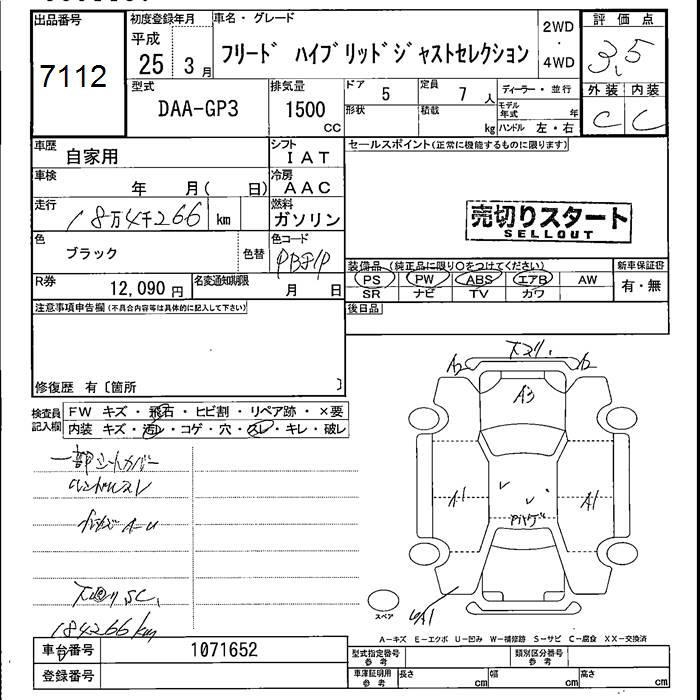 出品番号
7112
初度登録年月
平成
25 3月
車名・グレード
フリード ハイブリッドジャストセレクション
2WD
・
4WD
評価点
3.5
外装 内装
C C
型式
DAA-GP3
排気量
1500
cc
ドア
5
定員
7 人
形状
積載
kg
ディーラー・並行
モデル年式 年
ハンドル 左・右
車歴
自家用
シフト
IAT
車検
年 月( 日)
冷房
AAC
走行
18万4千266 km
燃料
ガソリン
色
ブラック
色替
色コード
R券
12,090円
名変通知期限
月 日
セールスポイント(正常に機能するものに限ります)
売切りスタート
SELLOUT
装備品 (純正品に限り○をつけてください)
PS PW ABS エアB AW
SR ナビ TV カワ
新車保証書
有・無
後日品
注意事項申告欄(不具合内容等は具体的に記入して下さい)
修復歴 有〔箇所 〕
検査員
記入欄
FW キズ・飛石・ヒビ割・リペア跡・×要
内装 キズ・汚レ・コゲ・穴・スレ・キレ・破レ
一部シートカバー
ハンドルスレ
184266km
A2
A2
A3
A1
A1
スペア
A-キズ E-エクボ U-凹み W-補修跡 S-サビ C-腐食 XX-交換済
車台番号
1071652
登録番号
型式指定番号
参考
類別区分番号
参考
車庫証明用
参考
長さ cm
幅 cm
高さ cm